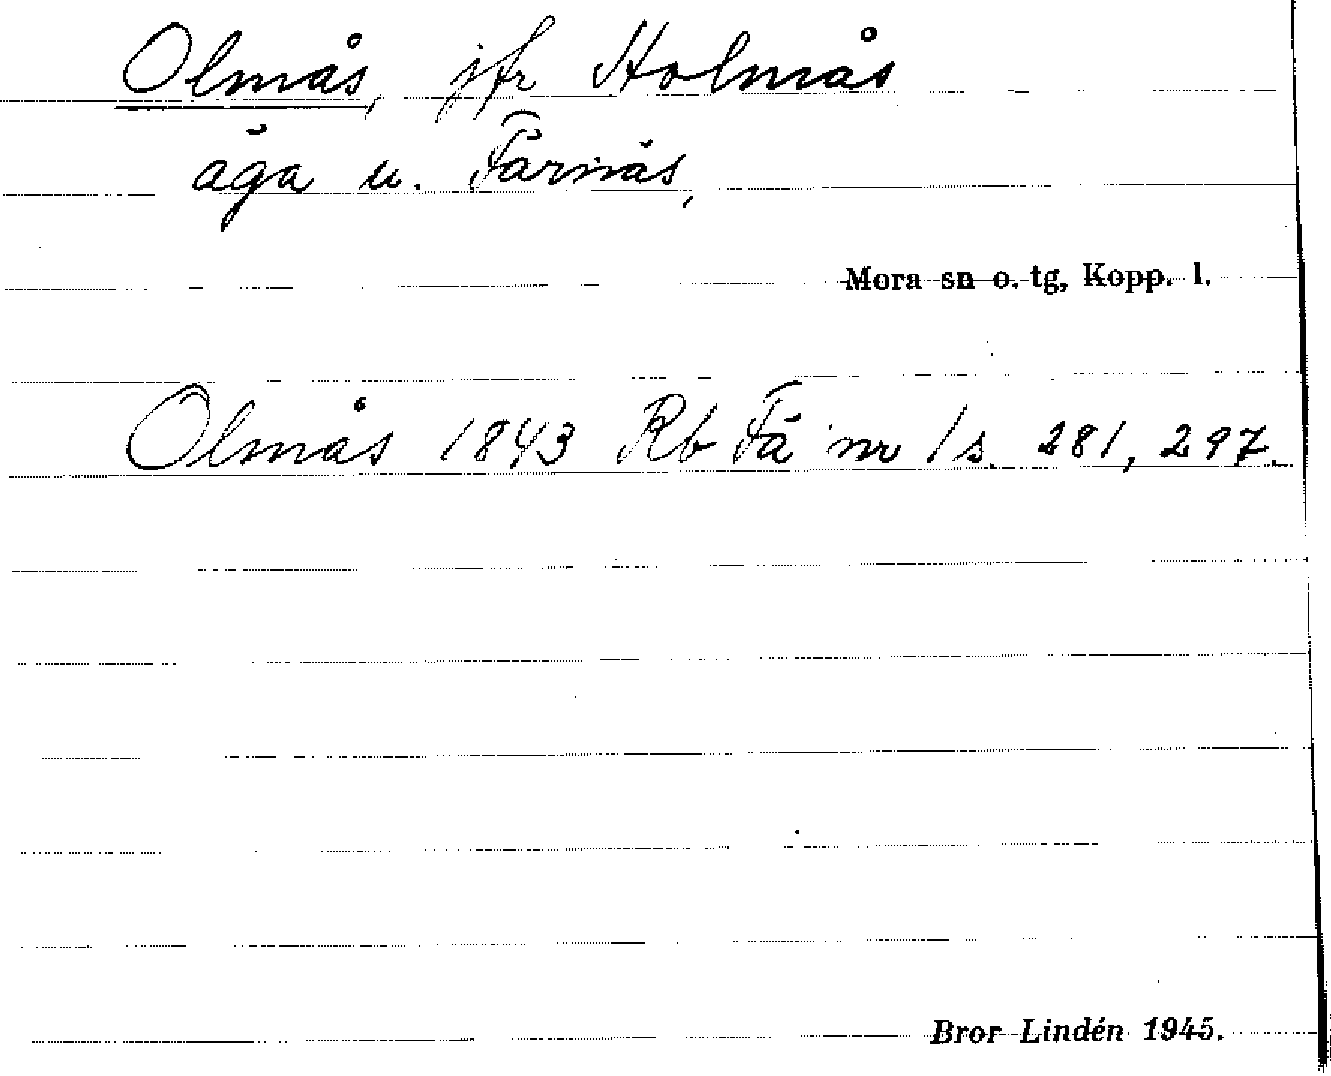 Olmås, jfr Holmås
äga u. Färnäs,
Mora sn o. tg, Kopp. l.
Olmås 1843 Rb Fä nr 1 s. 281, 297.
Bror Lindén 1945.